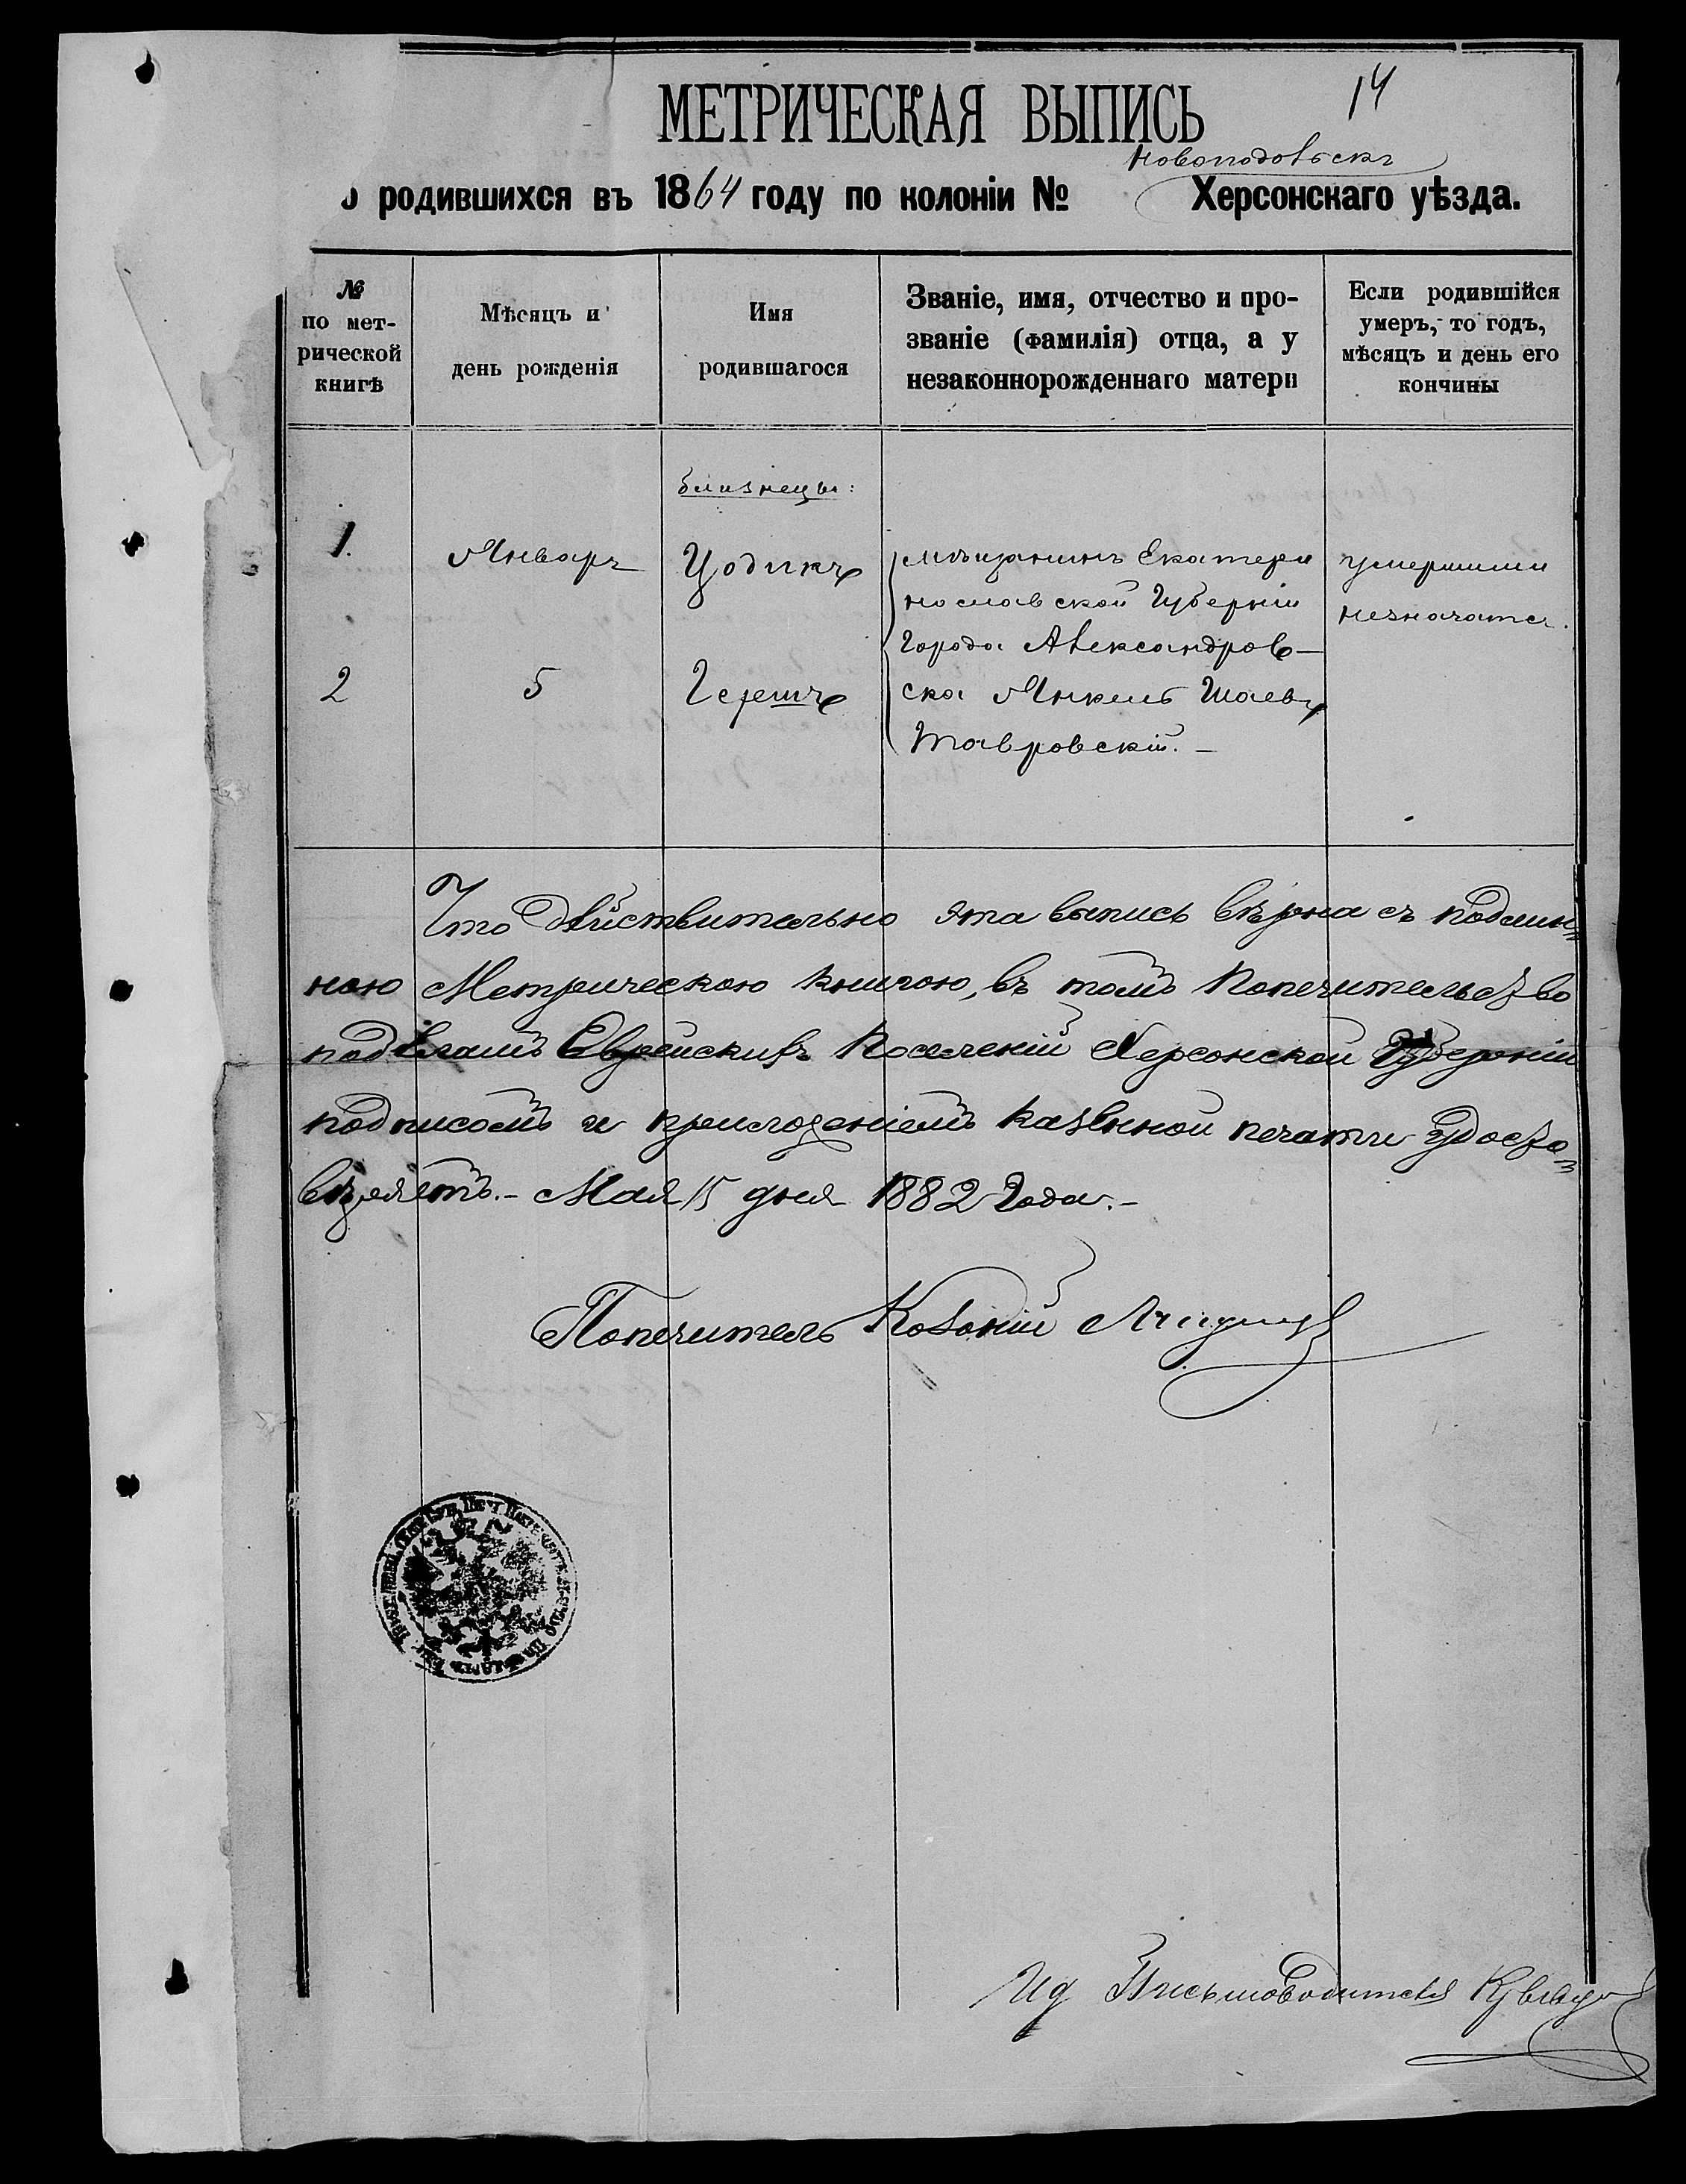 14
МЕТРИЧЕСКАЯ ВЫПИСЬ
Новоподольскъ
о родившихся въ 1864 году по колоніи № Херсонскаго уѣзда.
№ по мет-
рической
книгѣ
Мѣсяцъ и
день рожденія
Имя
родившагося
Званіе, имя, отчество и про-
званіе (фамилія) отца, а у
незаконнорожденнаго матери
Если родившійся
умеръ, то годъ,
мѣсяцъ и день его
кончины
близнецы:
1. Январь Цодикъ
2 5 Гершъ
мѣщанинъ Екатери
нославской Губерніи
Города Александров-
ска Янкель Шаевъ
Тавровскій.-
умершими
незначатся.
Что дѣйствительно эта выпись вѣрна съ подлин=
ною Метрическою книгою, въ томъ Попечительство
надъ Еврейскихъ Поселеній Херсонской Губерніи
подписомъ и приложеніемъ казенной печати удосто=
вѣряетъ.- Мая 15 дня 1882 Года.-
Попечитель Колоній
Ид Письмоводителя